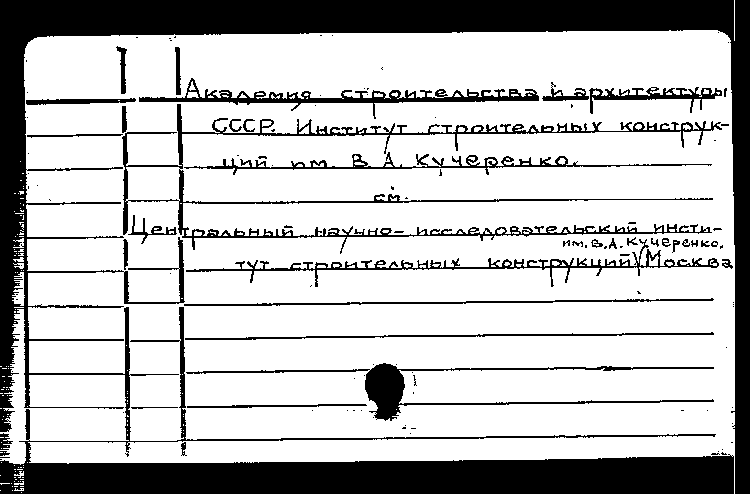 Академия строительства и архитектуры
СССР. Институт строительных конструк-
ций им. В. А. Кучеренко.
см.
Центральный научно-исследовательский инсти-
им. В.А. Кучеренко.
тут строительных конструкций Москва